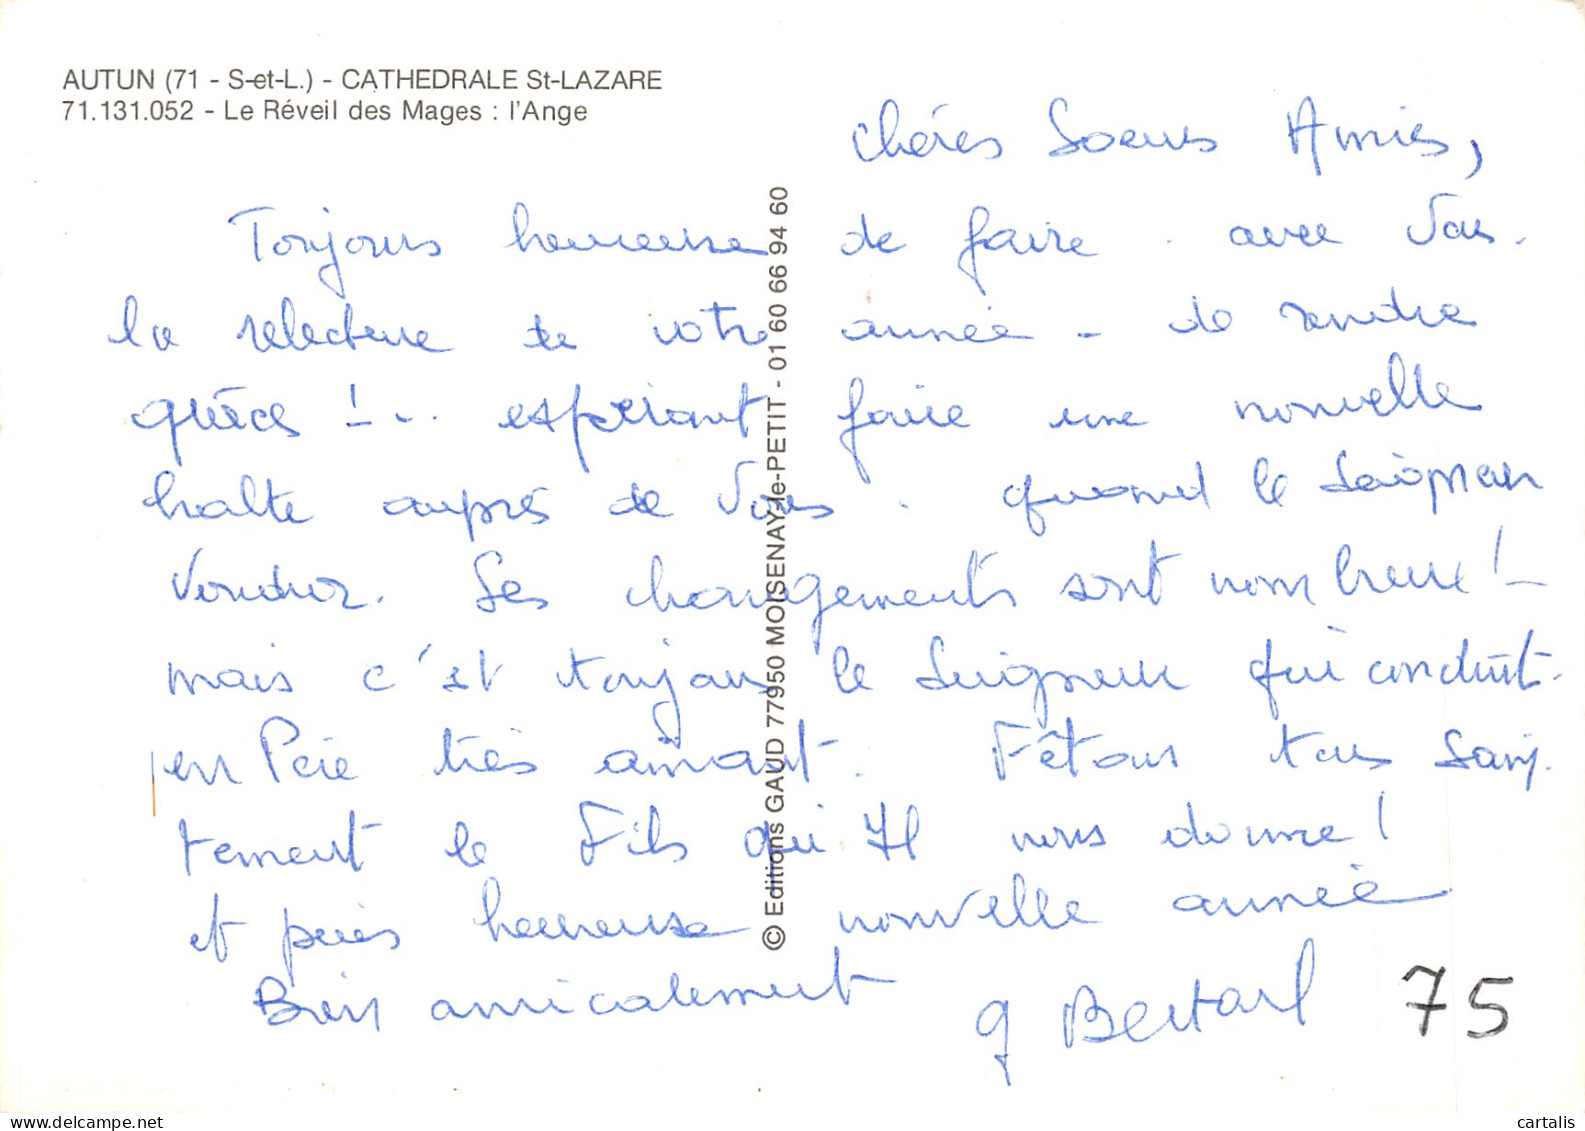 AUTUN (71 - S-et-L.) - CATHEDRALE St-LAZARE
71.131.052 - Le Réveil des Mages : l'Ange
Chéres Soeurs Amies,
Toujours heureuse de faire . avec Vous .
la relecture de votre année - de rendre
grâces ! - .. espérant faire une nouvelle
halte auprès de Vous . quand le Seigneur
Voudra. Les changements sont nombreux ! -
mais c'est toujours le Seigneur qui conduit.
en Père très aimant . Fêtons tous Sain-
tement le Fils qu'Il nous donne !
et puis heureuse nouvelle année
Bien amicalement g Bertard
75
© Editions GAUD 77950 MOISENAY-le-PETIT - 01 60 66 94 60
cartalis